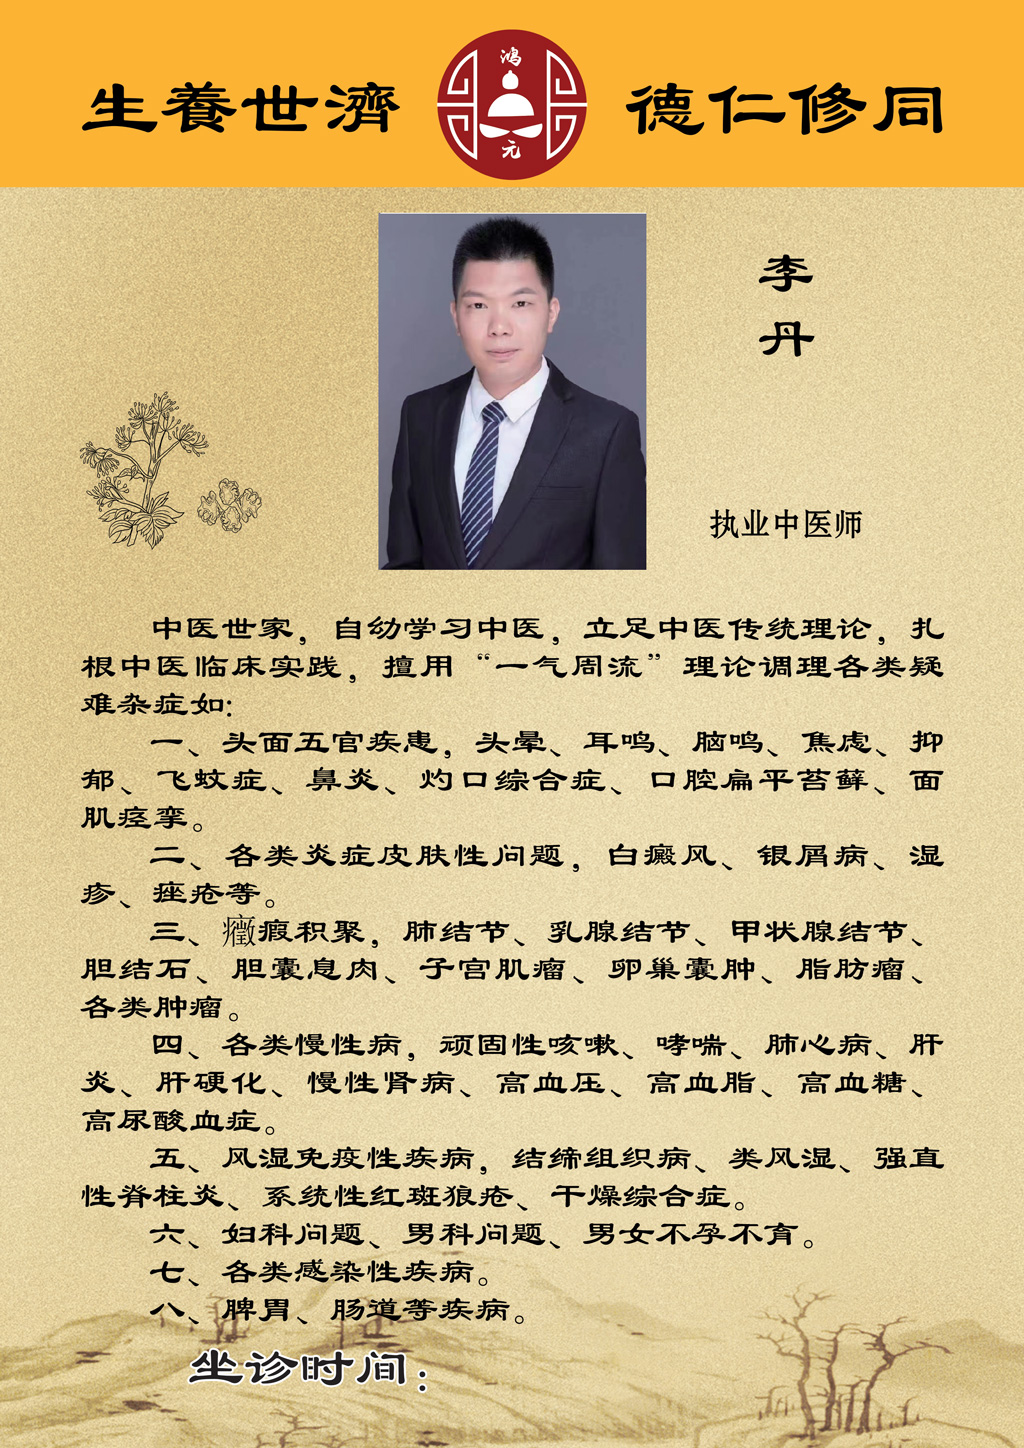 生養世濟
鴻
元
德仁修同
李
丹
执业中医师
中医世家，自幼学习中医，立足中医传统理论，扎
根中医临床实践，擅用“一气周流”理论调理各类疑
难杂症如:
一、头面五官疾患，头晕、耳鸣、脑鸣、焦虑、抑
郁、飞蚊症、鼻炎、灼口综合症、口腔扁平苔藓、面
肌痉挛。
二、各类炎症皮肤性问题，白癜风、银屑病、湿
疹、痤疮等。
三、癥瘕积聚，肺结节、乳腺结节、甲状腺结节、
胆结石、胆囊息肉、子宫肌瘤、卵巢囊肿、脂肪瘤、
各类肿瘤。
四、各类慢性病，顽固性咳嗽、哮喘、肺心病、肝
炎、肝硬化、慢性肾病、高血压、高血脂、高血糖、
高尿酸血症。
五、风湿免疫性疾病，结缔组织病、类风湿、强直
性脊柱炎、系统性红斑狼疮、干燥综合症。
六、妇科问题、男科问题、男女不孕不育。
七、各类感染性疾病。
八、脾胃、肠道等疾病。
坐诊时间：